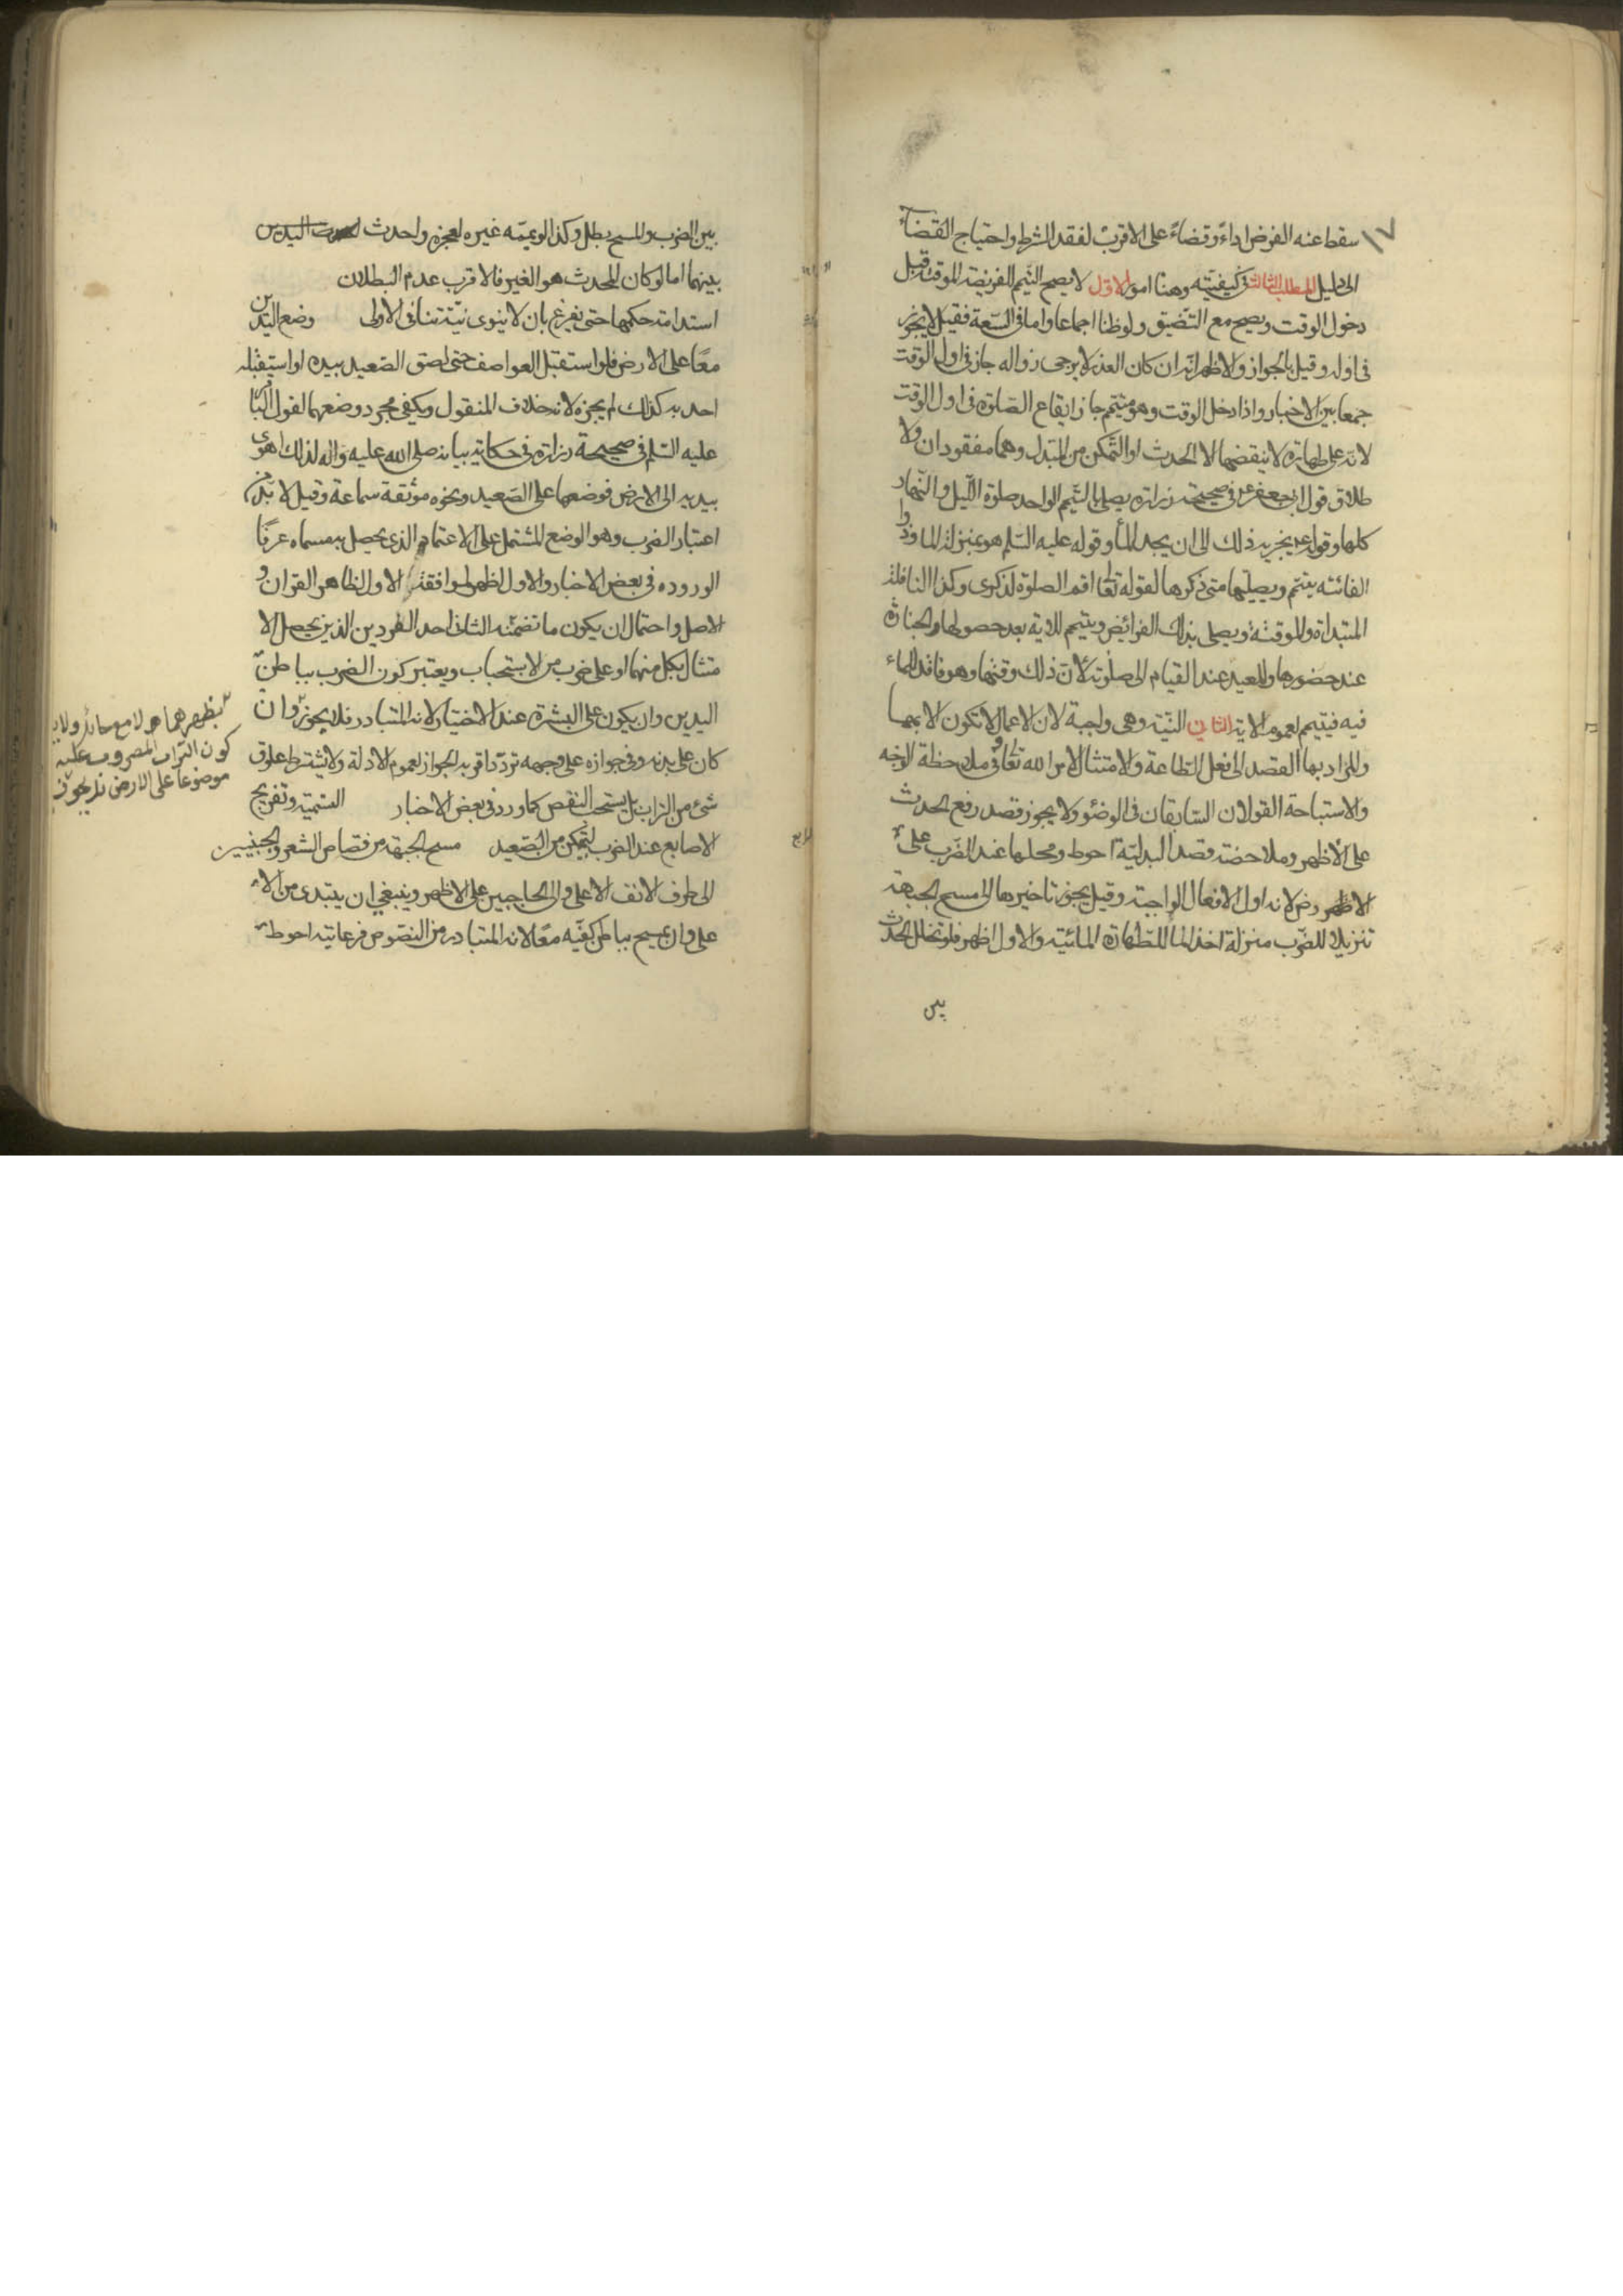 سقط عنه الفرض اداءً وقضاءً على الاقرب لفقد الشرط واحتياج القضاء
الى دليل المطلب الثالث فى كيفيته وهنا امور الاول لا يصح التيمم للفريضة الموقتة قبل
دخول الوقت ويصح مع التضيق ولو ظنا اجماعا واما فى السعة فقيل لا يجوز
فى اوله وقيل بالجواز والاظهر انه ان كان العذر لا يرجى زواله جاز فى اول الوقت
جمعا بين الاخبار واذا دخل الوقت وهو متيمم جاز ايقاع الصلوة فى اول الوقت
لانه على طهارة لا ينقضها الا الحدث او التمكن من المبدل وهما مفقودان ولا
طلاق قول ابى جعفر ع فى صحيحة زرارة يصلى بالتيمم الواحد صلوة الليل والنهار
كلها وقوله ع يجزيه ذلك الى ان يجد الماء وقوله عليه السلم هو بمنزلة الماء وذا
الفائتة يتيمم ويصليها متى ذكرها لقوله تعالى اقم الصلوة لذكرى وكذا النافلة
المبتداة والموقتة ويصلى بذلك الفرائض ويتيمم للاية بعد حصولها والجنازة
عند حضورها وللعيد عند القيام الى صلوته لان ذلك وقتها وهو فاقد للماء
فيه فيتيمم لعموم الاية الثانى النية وهى واجبة لان الاعمال لا تكون الا بها
والمراد بها القصد الى فعل الطاعة والامتثال لامر الله تعالى وفى ملاحظة الوجه
والاستباحة القولان السابقان فى الوضوء ولا يجوز قصد رفع الحدث
على الاظهر وملاحضة قصد البدلية احوط ومحلها عند الضرب على
الاظهر لانه اول الافعال الواجبة وقيل يجوز تاخيرها الى مسح الجبهة
تنزيلا للضرب منزلة اخذ الماء للطهارة المائية والاول اظهر فلو تخلل الحدث
بين
بين الضرب والمسح بطل وكذا لو يممه غيره لعجزه واحدث
بينهما اما لو كان المحدث هو الغير فالاقرب عدم البطلان
استدامة حكمها حتى يفرغ بان لا ينوى نية تنافى الاولى وضع اليدين
معًا على الارض فلو استقبل العواصف حتى لصق الصعيد بيده او استيقبله
احد به كذلك لم يجزه لانه خلاف المنقول ويكفى مجرد وضعهما لقول الباقر
عليه السلم فى صحيحة زرارة فى حكاية بيانه صلى الله عليه واله لذلك اهوى
بيديه الى الارض فوضعهما على الصعيد ونحوه موثقة سماعة وقيل لا بد من
اعتبار الضرب وهو الوضع المشتمل على الاعتماد الذى يحصل به مسماه عرفًا
لوروده فى بعض الاخبار والاول اظهر لموافقة الاول لظاهر القران و
الاصل واحتمال ان يكون ما تضمنه الثانى احد الفردين الذين يحصل الا
متثال بكل منهما او على ضرب من الاستحباب ويعتبر كون الضرب بباطن
اليدين وان يكون على البشرة عند الاختيار لانه المتبادر فلا يجوز وان
كان على بدنه وفى جوازه على وجهه تردد اقربه الجواز لعموم الادلة ولا يشترط علوق
شئ من التراب بل يستحب النفض كما ورد فى بعض الاخبار التسمية وتفريج
الاصابع عند الضرب لتمكن من الصعيد مسح الجبهة من قصاص الشعر والجبينين
الى طرف الانف الاعلى والى الحاجبين على الاظهر وينبغى ان يبتدى من الا
على وان يمسح بباطن كفيه معًا لانه المتبادر من النصوص فرعايته احوط
بظهرهما ولا مع حائل ولابد
كون التراب المضروب عليه
موضوعا على الارض فلا يجوز